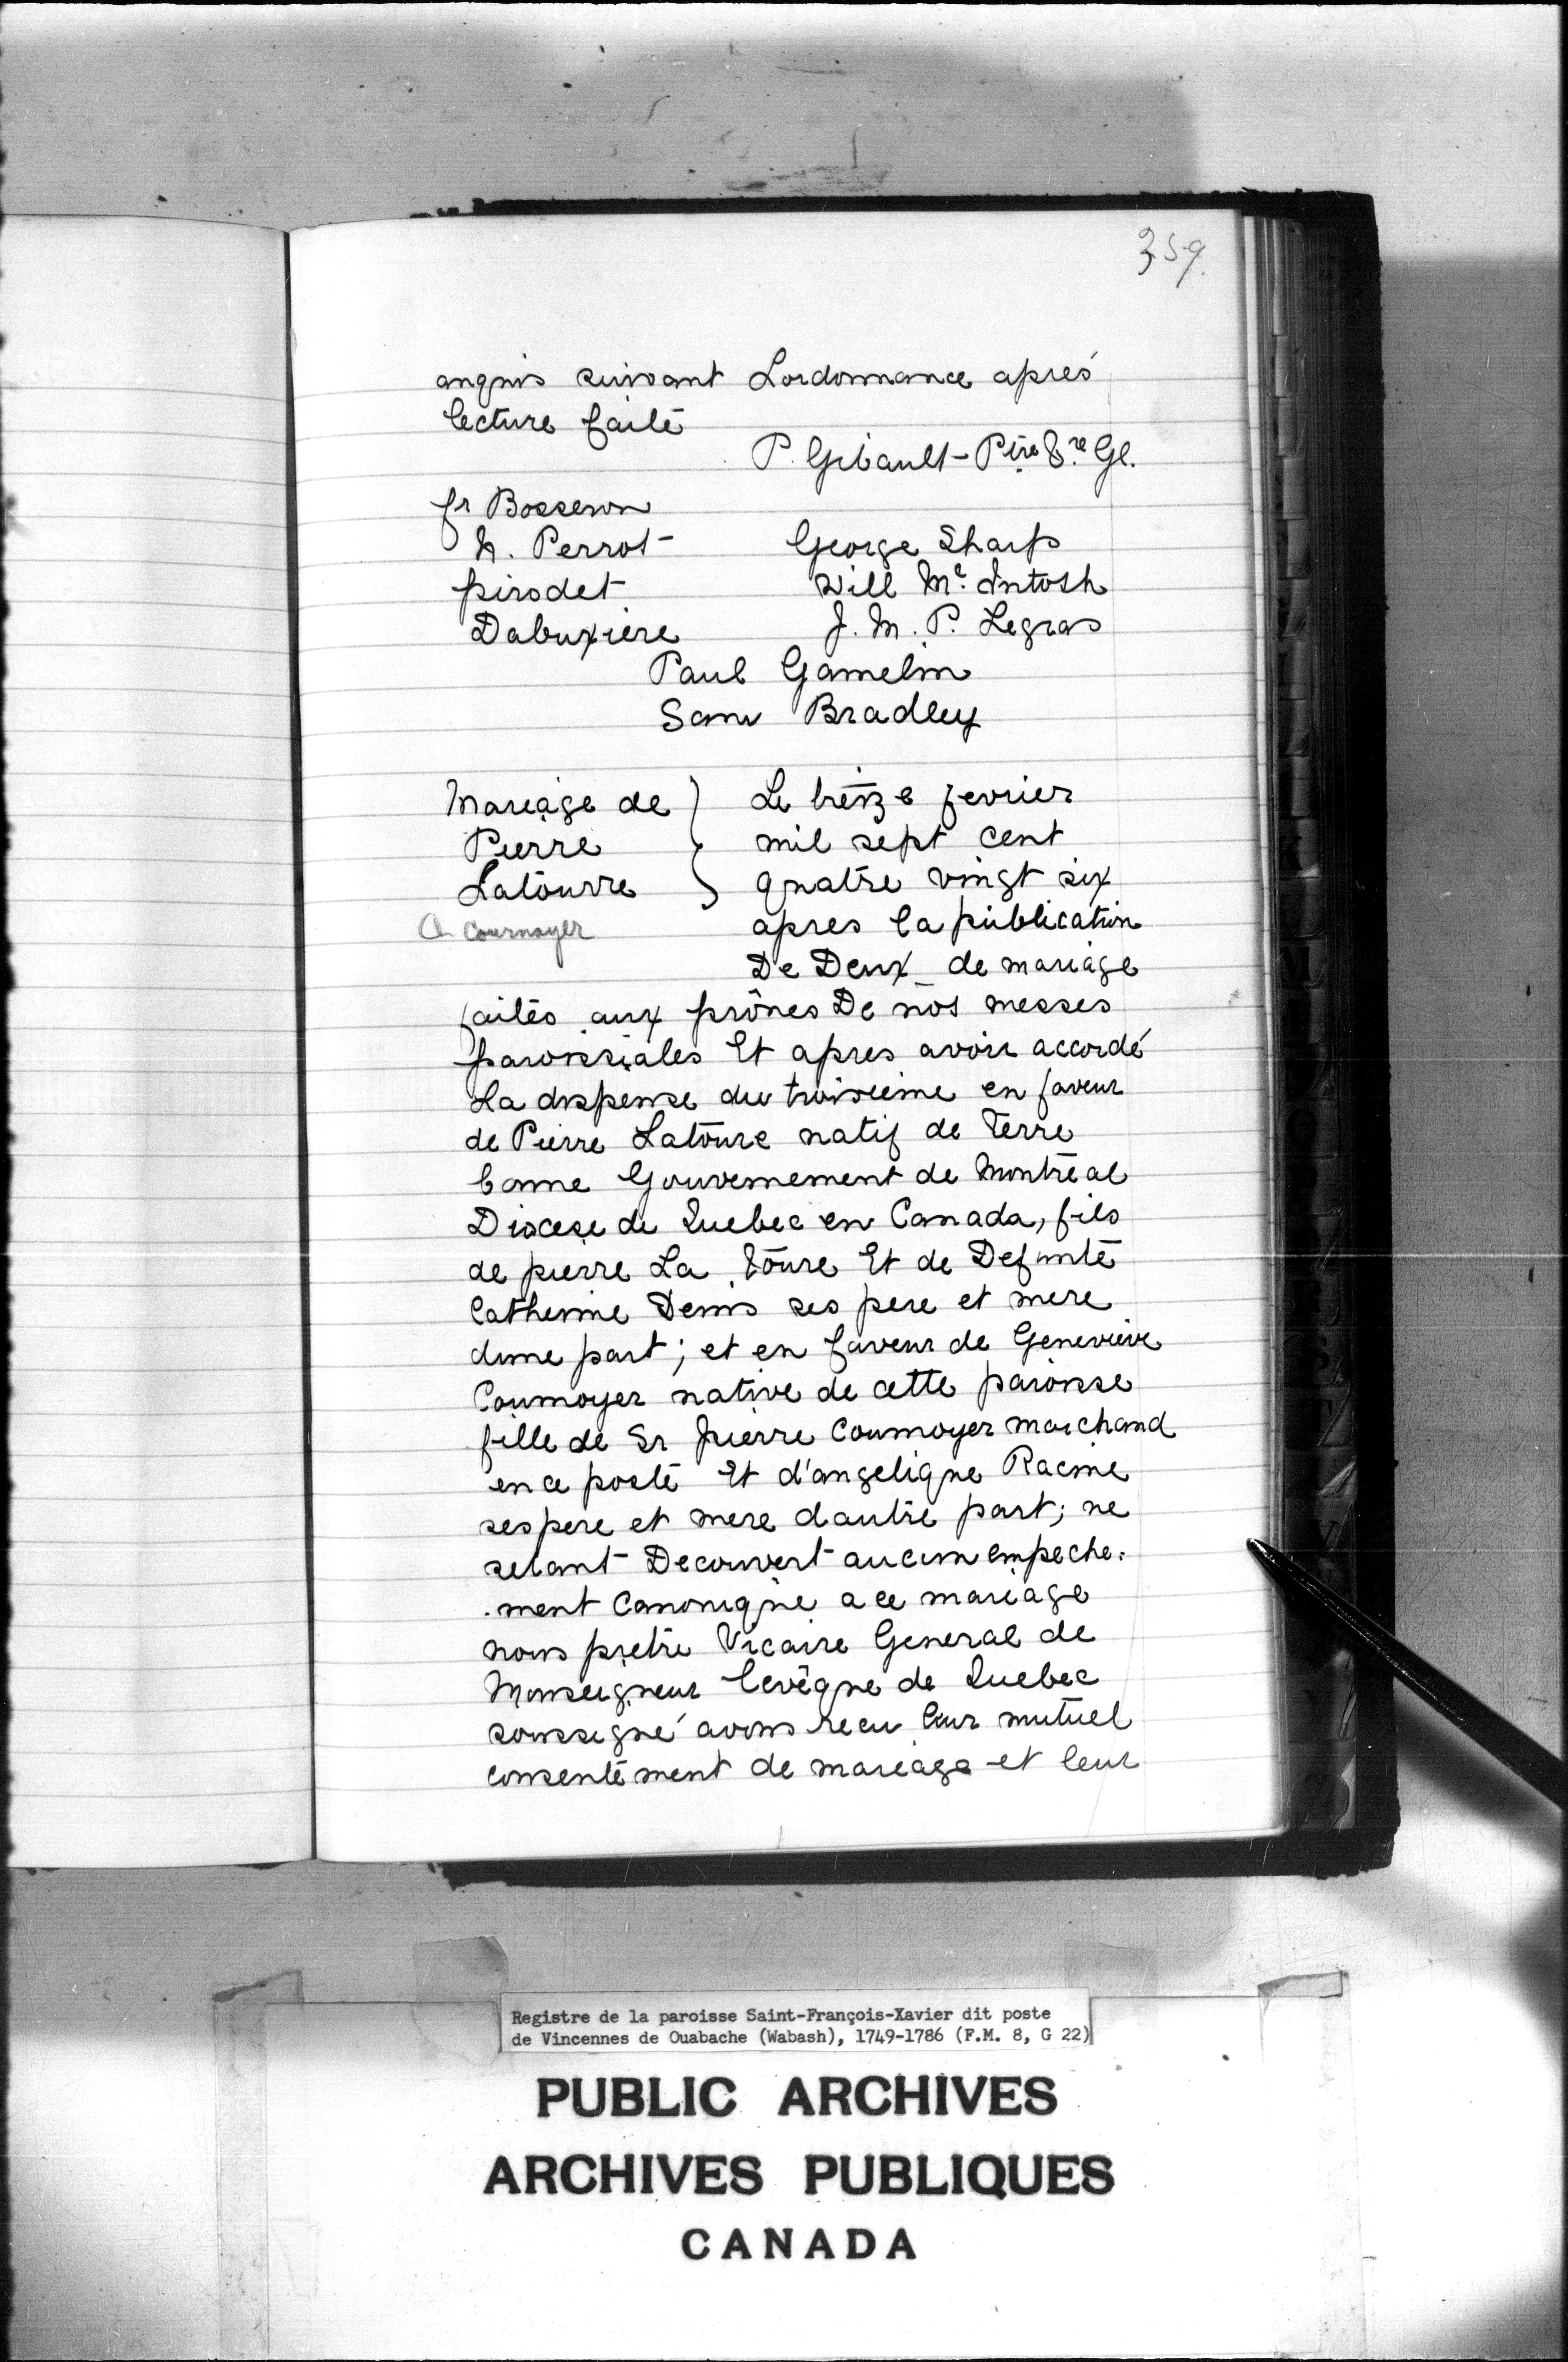 359.
anquis suivant Lordonnance aprés
lecture faite
P. Gibault - Ptre V.re Gl.
fr Bosseron
N. Perrot
George Sharp
pirodet
Will Mc. Intosh
Dabuxiere
J. M. P. Legras
Paul Gamelin
Sam Bradley
Mariage de
Pierre
Latourre
Cournoyer
Le treize fevrier
mil sept cent
quatre vingt six
apres la publication
De Deux de mariage
faites aux prônes De nos messes
paroissiales Et apres avoir accordé
La dispense du troisieme en faveur
de Pierre Latoure natif de Terre
bonne Gouvernement de Montreal
Diocese de Quebec en Canada, fils
de pierre La Toure Et de Defunte
Catherine Denis ses pere et mere
dune part; et en faveur de Genevieve
Cournoyer native de cette paroisse
fille de Sr Pierre Cournoyer marchand
en ce poste Et d'angelique Racine
ses pere et mere dautre part; ne
setant Decouvert aucun empeche.
.ment Canonique a ce mariage
nous pretre Vicaire General de
Monseigneur levêque de Quebec
soussigné avons recu leur mutuel
consentement de mariage et leur
Registre de la paroisse Saint-François-Xavier dit poste
de Vincennes de Ouabache (Wabash), 1749-1786 (F.M. 8, G 22)
PUBLIC ARCHIVES
ARCHIVES PUBLIQUES
CANADA